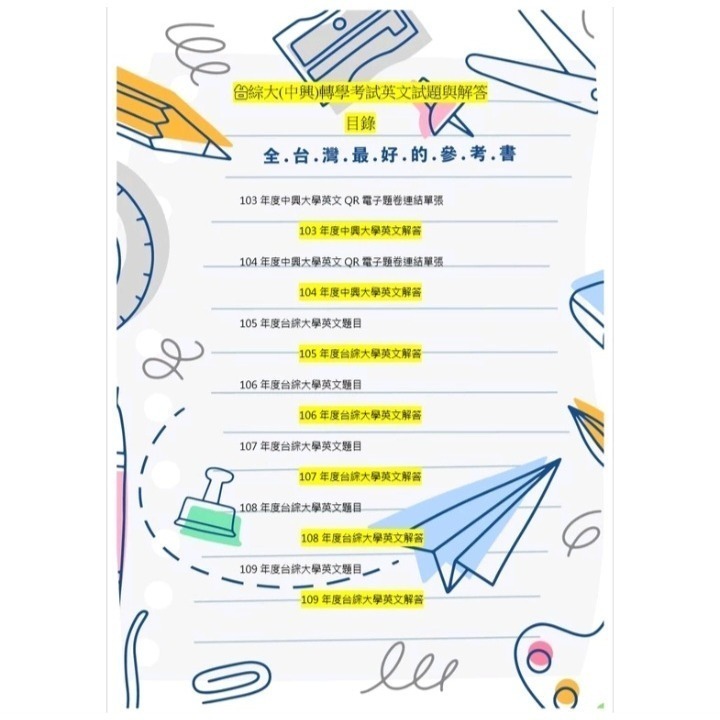 台綜大(中興)轉學考試英文試題與解答
目錄
全.台.灣.最.好.的.參.考.書
103 年度中興大學英文 QR 電子題卷連結單張
103 年度中興大學英文解答
104 年度中興大學英文 QR 電子題卷連結單張
104 年度中興大學英文解答
105 年度台綜大學英文題目
105 年度台綜大學英文解答
106 年度台綜大學英文題目
106 年度台綜大學英文解答
107 年度台綜大學英文題目
107 年度台綜大學英文解答
108 年度台綜大學英文題目
108 年度台綜大學英文解答
109 年度台綜大學英文題目
109 年度台綜大學英文解答